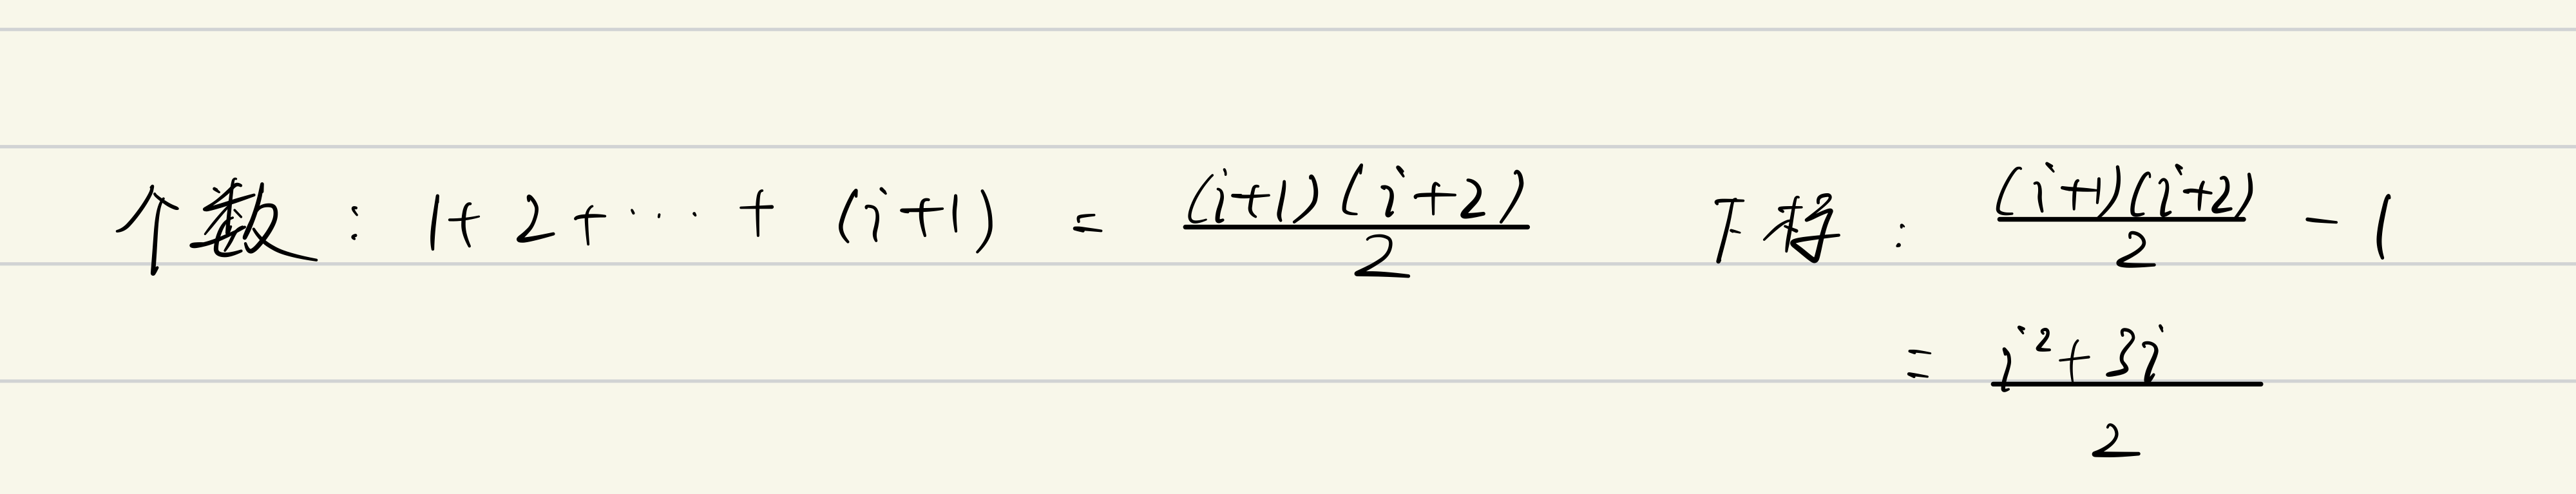 个数：1+2+⋯+(i+1) = (i+1)(i+2)/2 下标：(i+1)(i+2)/2 - 1
= i²+3i/2